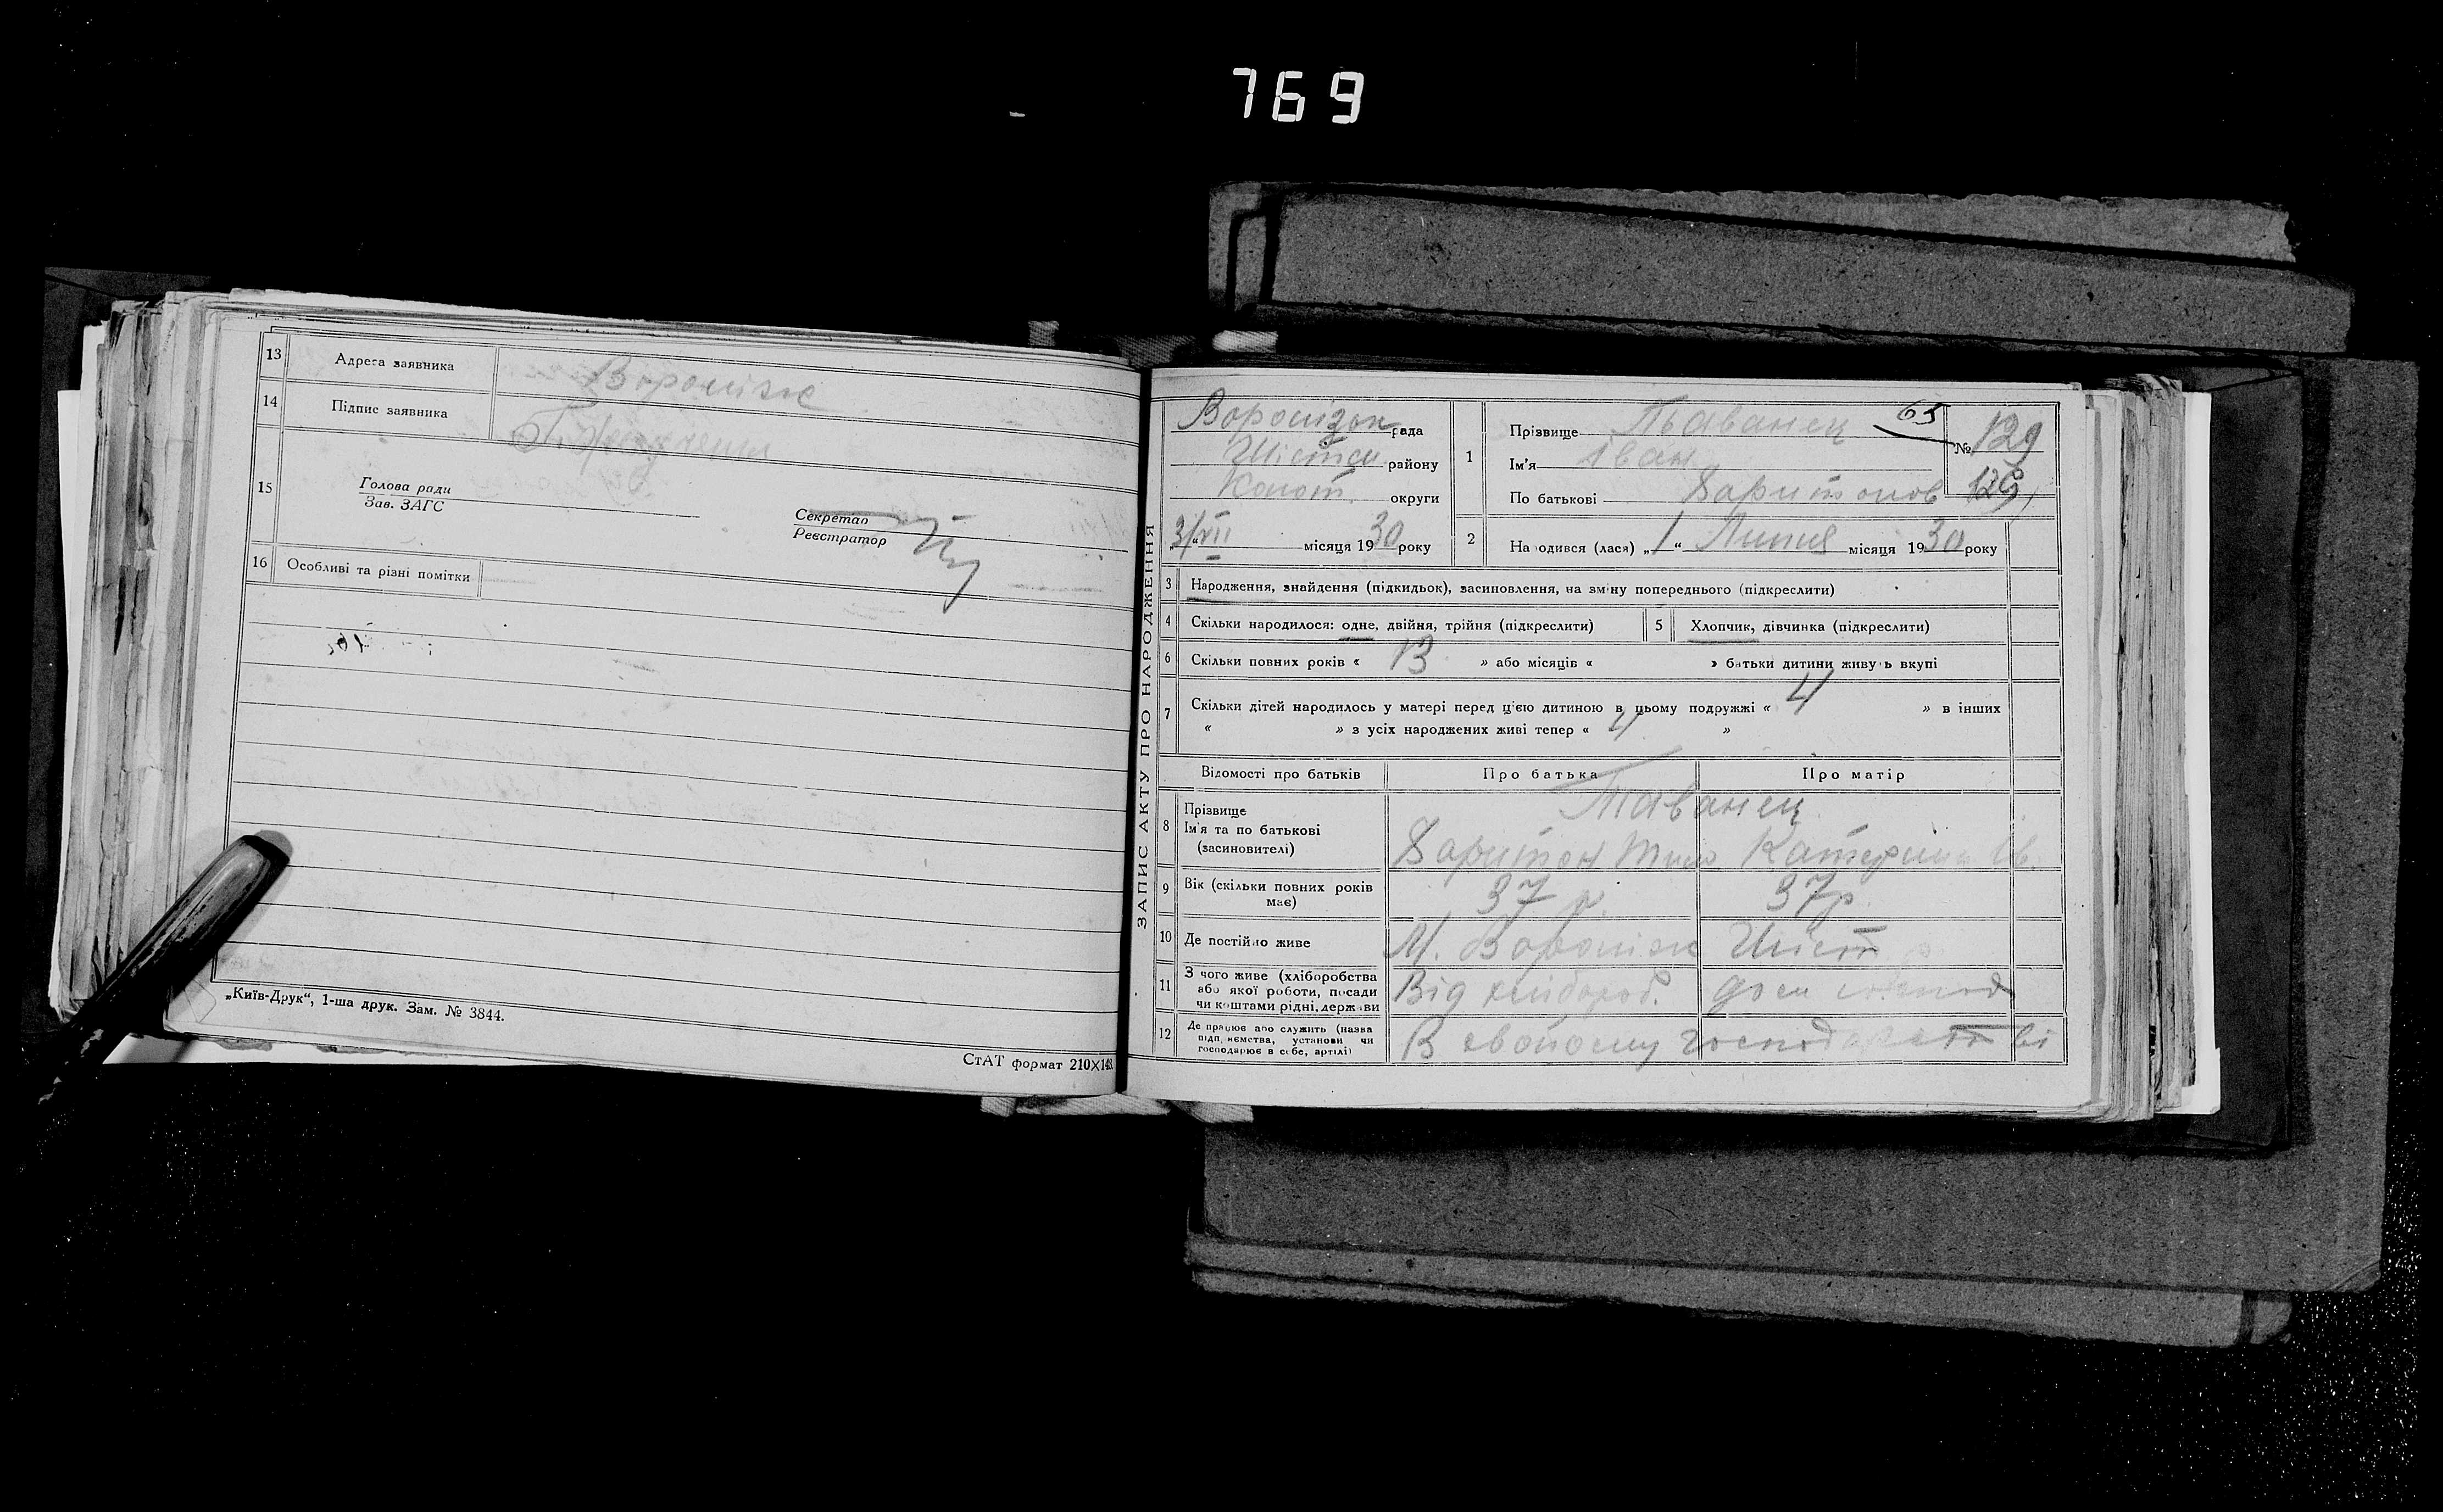 769
13 Адреса заявника Вороніж
14 Підпис заявника
15 Голова ради
Зав. ЗАГС
Секретар
Реєстратор
16 Особливі та різні помітки
„Київ-Друк“, 1-ша друк. Зам. № 3844.
СтАТ формат 210×148
ЗАПИС АКТУ ПРО НАРОДЖЕННЯ
Воронізок рада
району
Коногр. округи
3/VII місяця 1930 року
1 Прізвище
Ім'я Іван
По батькові Харитонов
65
№ 129
129
2 Народився (лася) „1“ Липня місяця 1930 року
3 Народження, знайдення (підкидьок), засиновлення, на зміну попереднього (підкреслити)
4 Скільки народилося: одне, двійня, трійня (підкреслити) 5 Хлопчик, дівчинка (підкреслити)
6 Скільки повних років « 13 » або місяців « » батьки дитини живуть вкупі
7 Скільки дітей народилось у матері перед цією дитиною в цьому подружжі « 4 » в інших
« » з усіх народжених живі тепер « 4 »
Відомості про батьків Про батька Про матір
8 Прізвище Таванец
Ім'я та по батькові Харитон Катерина Ів.
(засиновителі)
9 Вік (скільки повних років 37 р. 37 р.
має)
10 Де постійно живе М. Вороніж Шіст
11 З чого живе (хліборобства
або якої роботи, посади Від хлібороб. дом
чи коштами рідні, держави
12 Де працює або служить (назва
підприємства, установи чи В свойому господарстві
господарює в себе, артілі)